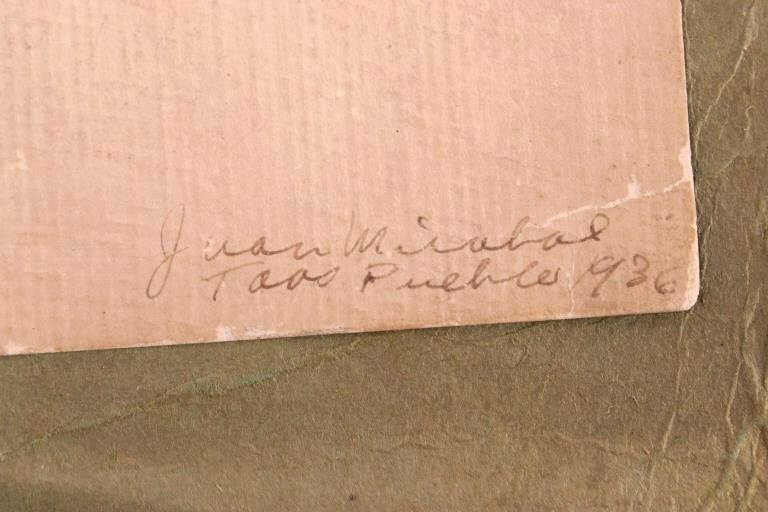 Juan Mirabal
Taos Pueblo 1936